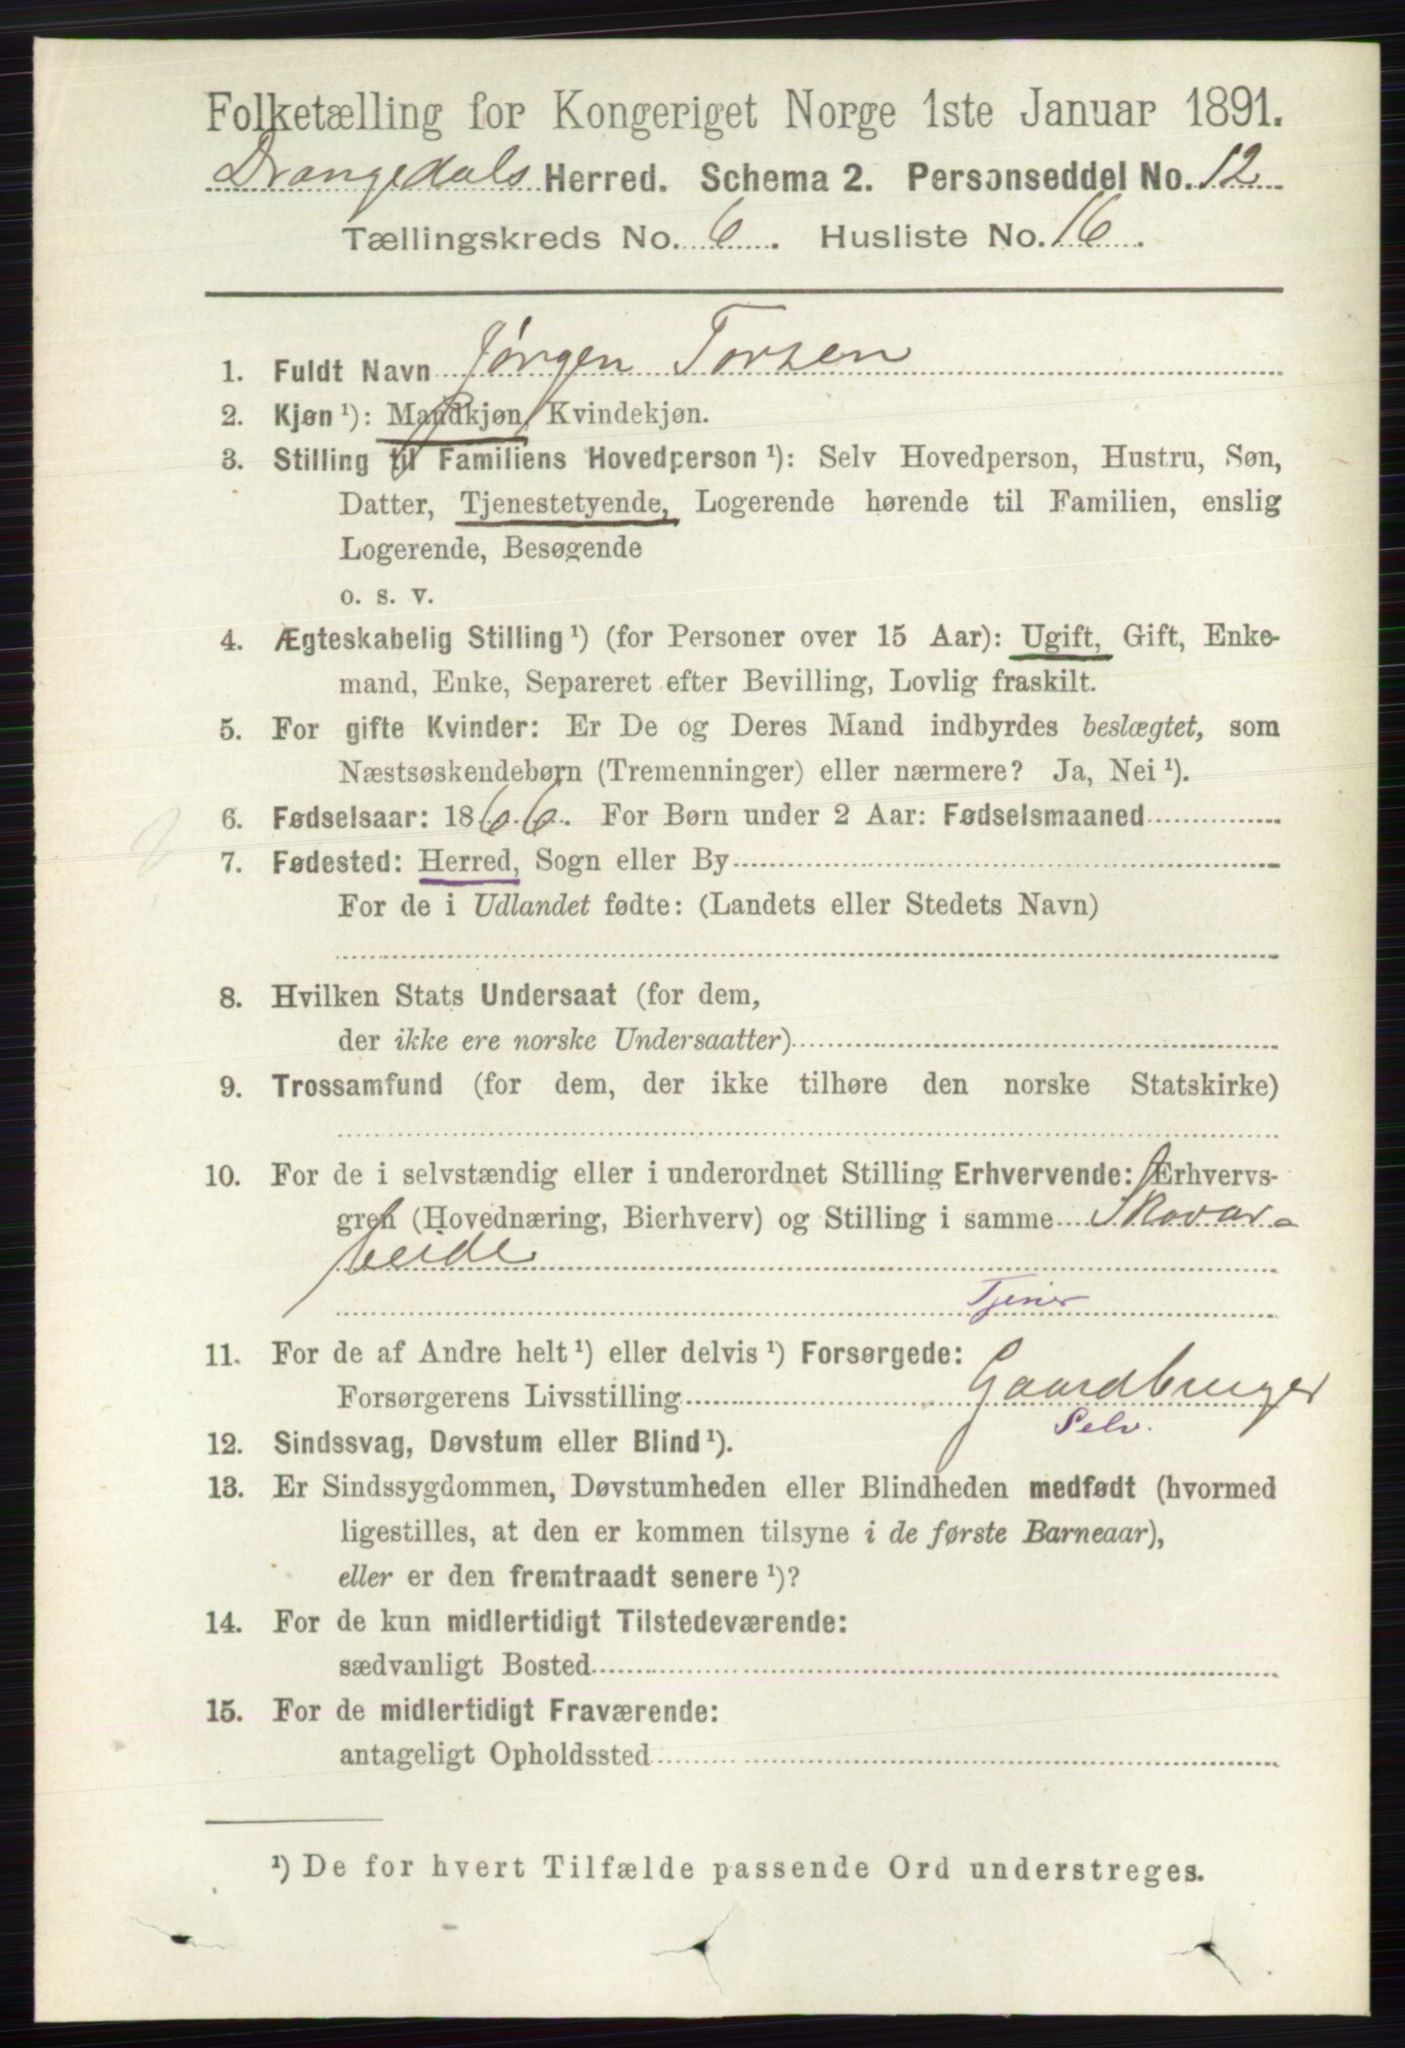 Folketælling for Kongeriget Norge 1ste Januar 1891.
Drangedals Herred. Schema 2. Personseddel No. 12
Tællingskreds No. 6. Husliste No. 16.
1. Fuldt Navn Jørgen Torsen
2. Kjøn ¹): Mandkjøn, Kvindekjøn.
3. Stilling til Familiens Hovedperson ¹): Selv Hovedperson, Hustru, Søn,
Datter, Tjenestetyende, Logerende hørende til Familien, enslig
Logerende, Besøgende
o. s. v.
4. Ægteskabelig Stilling ¹) (for Personer over 15 Aar): Ugift, Gift, Enke-
mand, Enke, Separeret efter Bevilling, Lovlig fraskilt.
5. For gifte Kvinder: Er De og Deres Mand indbyrdes beslægtet, som
Næstsøskendebørn (Tremenninger) eller nærmere? Ja, Nei ¹).
6. Fødselsaar: 1866. For Børn under 2 Aar: Fødselsmaaned
7. Fødested: Herred, Sogn eller By
For de i Udlandet fødte: (Landets eller Stedets Navn)
8. Hvilken Stats Undersaat (for dem,
der ikke ere norske Undersaatter)
9. Trossamfund (for dem, der ikke tilhøre den norske Statskirke)
10. For de i selvstændig eller i underordnet Stilling Erhvervende: Erhvervs-
gren (Hovednæring, Bierhverv) og Stilling i samme Skovar-
beide
Tjener
11. For de af Andre helt ¹) eller delvis ¹) Forsørgede:
Forsørgerens Livsstilling Gaardbruger
Selv.
12. Sindssvag, Døvstum eller Blind ¹).
13. Er Sindssygdommen, Døvstumheden eller Blindheden medfødt (hvormed
ligestilles, at den er kommen tilsyne i de første Barneaar),
eller er den fremtraadt senere ¹)?
14. For de kun midlertidigt Tilstedeværende:
sædvanligt Bosted
15. For de midlertidigt Fraværende:
antageligt Opholdssted
¹) De for hvert Tilfælde passende Ord understreges.